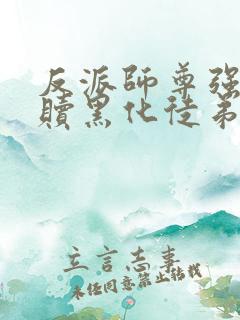 反派師尊強
贖黑化徒弟
立言志事
未经同意禁止转载